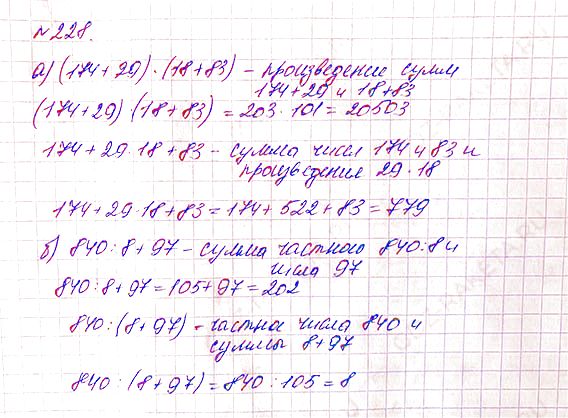 №228.
а) (174+29)·(18+83) – произведение сумм
174+29 и 18+83
(174+29)(18+83) = 203·101 = 20503
174+29·18+83 – сумма чисел 174 и 83 и
произведение 29·18
174+29·18+83 = 174+522+83 = 779
б) 840:8+97 – сумма частного 840:8 и
числа 97
840:8+97 = 105+97 = 202
840:(8+97) – частное числа 840 и
суммы 8+97
840:(8+97) = 840:105 = 8